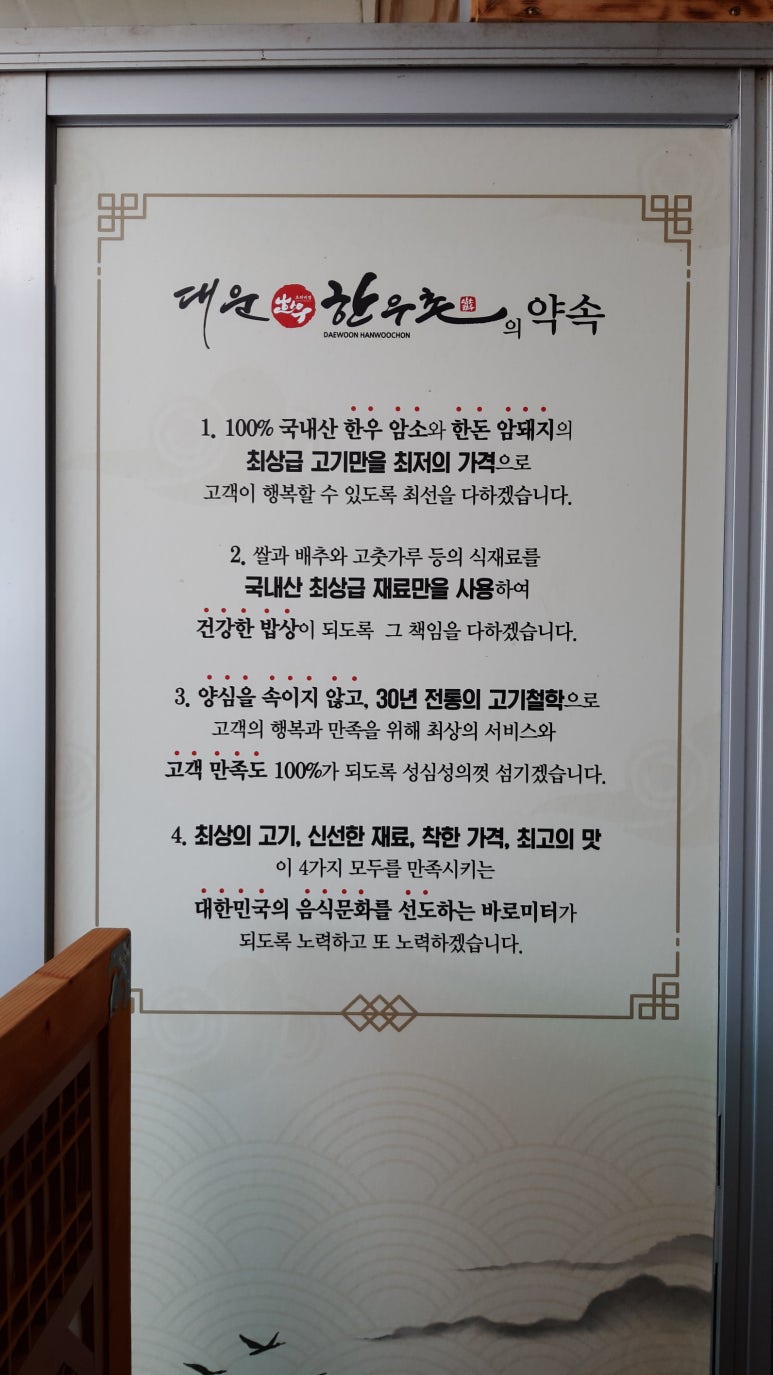 대운 한우 한우촌의 약속
DAEWOON HANWOOCHON
1. 100% 국내산 한우 암소와 한돈 암돼지의
최상급 고기만을 최저의 가격으로
고객이 행복할 수 있도록 최선을 다하겠습니다.
2. 쌀과 배추와 고춧가루 등의 식재료를
국내산 최상급 재료만을 사용하여
건강한 밥상이 되도록 그 책임을 다하겠습니다.
3. 양심을 속이지 않고, 30년 전통의 고기철학으로
고객의 행복과 만족을 위해 최상의 서비스와
고객 만족도 100%가 되도록 성심성의껏 섬기겠습니다.
4. 최상의 고기, 신선한 재료, 착한 가격, 최고의 맛
이 4가지 모두를 만족시키는
대한민국의 음식문화를 선도하는 바로미터가
되도록 노력하고 또 노력하겠습니다.